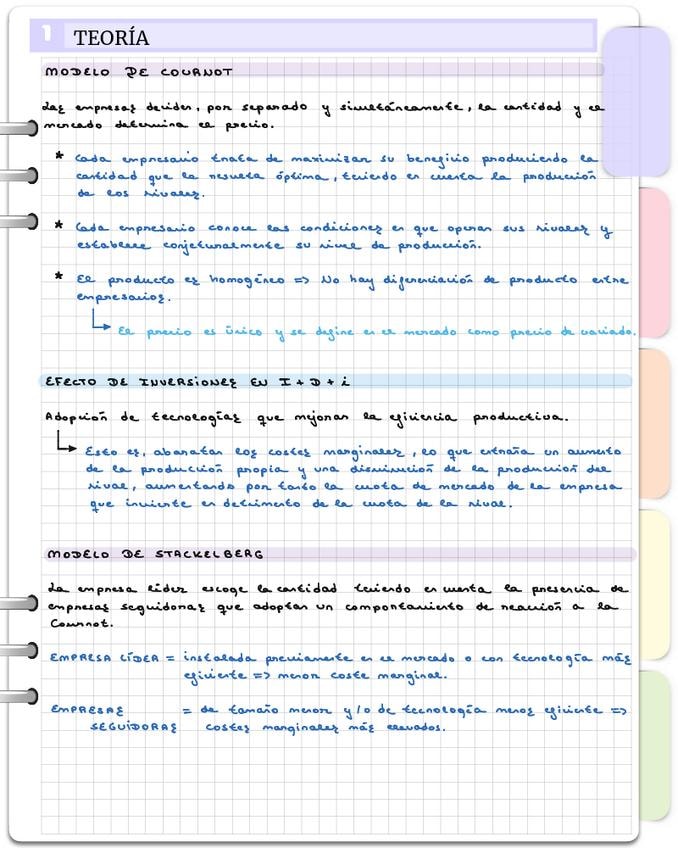 1 TEORÍA
MODELO DE COURNOT
Las empresas deciden, por separado y simultáneamente, la cantidad y el
mercado determina el precio.
* Cada empresario trata de maximizar su beneficio produciendo la
cantidad que la resulta óptima, teniendo en cuenta la producción
de los rivales.
* Cada empresario conoce las condiciones en que operan sus rivales y
establece conjeturalmente su nivel de producción.
* El producto es homogéneo => No hay diferenciación de producto entre
empresarios.
El precio es único y se define en el mercado como precio de vaciado.
EFECTO DE INVERSIONES EN I + D + i
Adopción de tecnologías que mejoran la eficiencia productiva.
Esto es, abaratan los costes marginales, lo que entraña un aumento
de la producción propia y una disminución de la producción del
rival, aumentando por tanto la cuota de mercado de la empresa
que invierte en detrimento de la cuota de la rival.
MODELO DE STACKELBERG
La empresa líder escoge la cantidad teniendo en cuenta la presencia de
empresas seguidoras que adoptan un comportamiento de reacción a la
Cournot.
EMPRESA LÍDER = instalada previamente en el mercado o con tecnología más
eficiente => menor coste marginal.
EMPRESAS = de tamaño menor y/o de tecnología menos eficiente =>
SEGUIDORAS costes marginales más elevados.